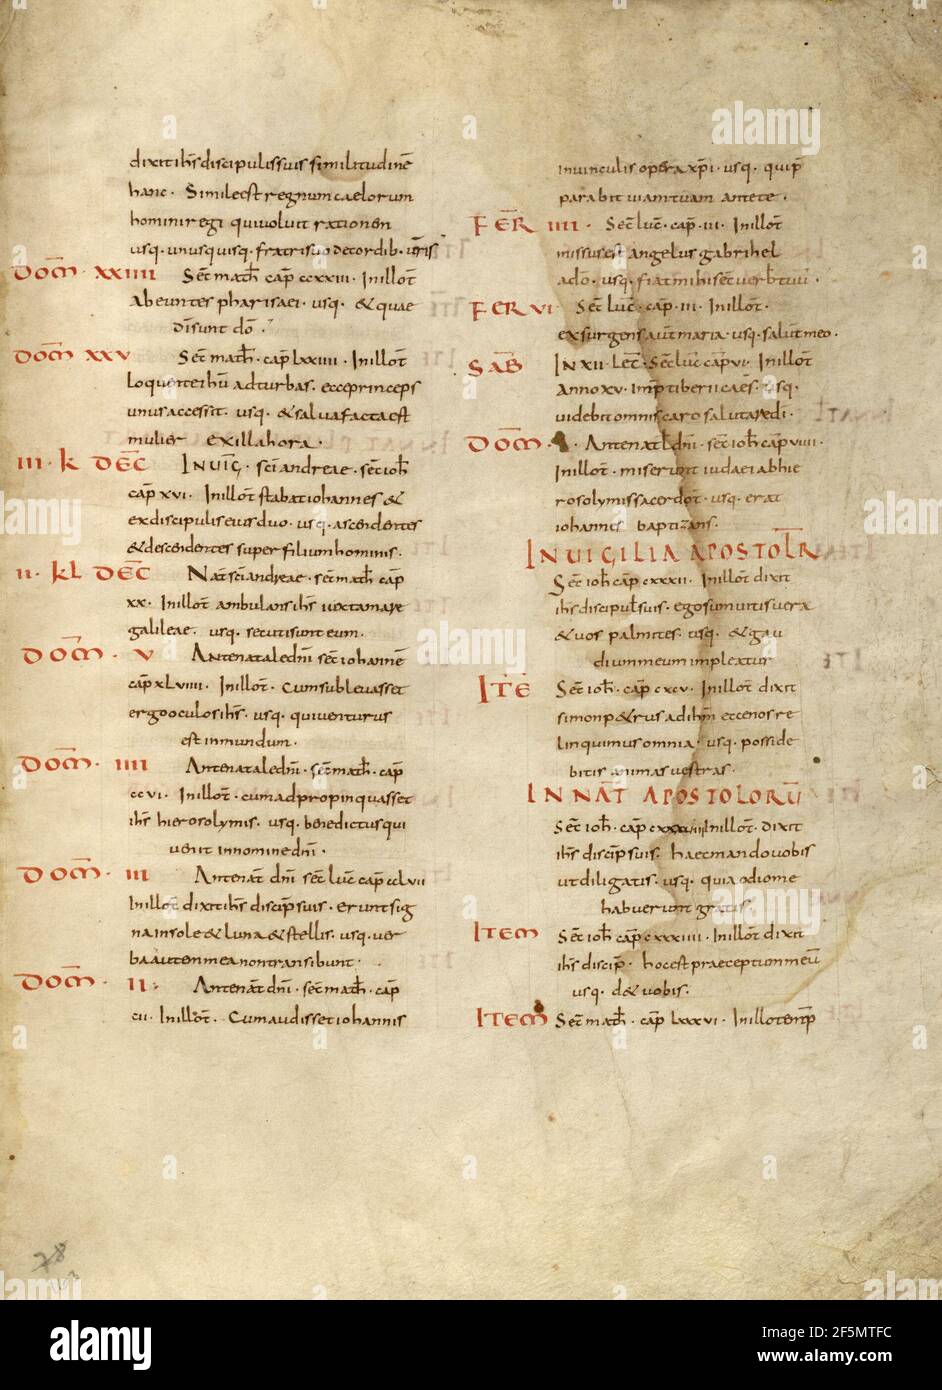 dixit ih̅s discipulis suis similitudinē
hanc · Simile est regnum caelorum
homini regi qui voluit rationen
usq · unusquisq · fratri suo de cordib · ur̅is
DOM̅ · XXIIII Sec̅ math̅ cap̅ ccxxiii · In illot̅
Abeuntes pharisaei · usq · & quae
di̅ sunt do̅ ·
DOM̅ XXV Sec̅ math̅ · cap̅ lxxiiii · In illot̅
Loquente ih̅u ad turbas · ecce princeps
unus accessit · usq · & salva facta est
mulier ex illa hora ·
III · K DEC̅ IN UIG̅ · sc̅i andreae · sec̅ ioh̅
cap̅ xvi · In illot̅ stabat iohannes &
ex discipulis eius duo · usq · ascendentes
& descendentes super filium hominis ·
II · KL DEC̅ Nat̅ sc̅i andreae · sec̅ math̅ cap̅
xx · In illot̅ ambulans ih̅s iuxta mare
galileae · usq · secuti sunt eum ·
DOM̅ · V Ante natale dn̅i sec̅ iohannē
cap̅ xlviiii · In illot̅ · Cum sublevasset
ergo oculos ih̅s · usq · qui venturus
est in mundum ·
DOM̅ · IIII Ante natale dn̅i · sec̅ math̅ · cap̅
ccvi · In illot̅ · cum adpropinquasset
ih̅s hierosolymis · usq · benedictus qui
venit in nomine dn̅i ·
DOM̅ · III Ante nat̅ dn̅i sec̅ luc̅ cap̅ cclvii
In illot̅ dixit ih̅s discip̅ suis · erunt sig
na in sole & luna & stellis · usq · ver
ba autem mea non transibunt ·
DOM̅ · II · Ante nat̅ dn̅i · sec̅ math̅ · cap̅
cii · In illot̅ · Cum audisset iohannis
in vinculis opera xp̅i · usq · qui p̅
parabit viam tuam ante te ·
FER̅ IIII · Sec̅ luc̅ · cap̅ · iii · In illot̅
missus est angelus gabrihel
a do̅ · usq · fiat mihi sec̅ verb̅ tuū ·
FER VI · Sec̅ luc̅ · cap̅ · iii · In illot̅ ·
exsurgens aut̅ maria · usq · salut̅ meo ·
SAB̅ IN XII · LEC̅ · Sec̅ luc̅ cap̅ vi · In illot̅
Anno xv · imp̅ tiberii caes̅ · usq ·
videbit omnis caro salutare di̅ ·
DOM̅ · Ante nat̅ dn̅i · sec̅ ioh̅ cap̅ viiii ·
In illot̅ · miserunt iudaei ab hie
rosolymis sacerdot̅ · usq · erat
iohannis baptizans ·
IN UIGILIA APOSTOLR̅
Sec̅ ioh̅ cap̅ cxxxii · In illot̅ dixit
ih̅s discipul̅ suis · ego sum vitis vera
& vos palmites · usq · & gau
dium meum impleatur
ITĒ Sec̅ ioh̅ · cap̅ cxcv · In illot̅ dixit
simon p&rus ad ih̅m ecce nos re
linquimus omnia · usq · posside
bitis animas vestras ·
IN NAT̅ APOSTOLORŪ
Sec̅ ioh̅ · cap̅ In illot̅ · dixit
ih̅s discip̅ suis · haec mando vobis
ut diligatis · usq · quia odio me
habuerunt gratis ·
ITEM Sec̅ ioh̅ cap̅ cxxxiiii · In illot̅ dixit
ih̅s discip̅ · hoc est praeceptum meū
usq · d& vobis ·
ITEM Sec̅ math̅ · cap̅ lxxxvi · In illo temp̅
28
alamy
Image ID: 2F5MTFC
www.alamy.com